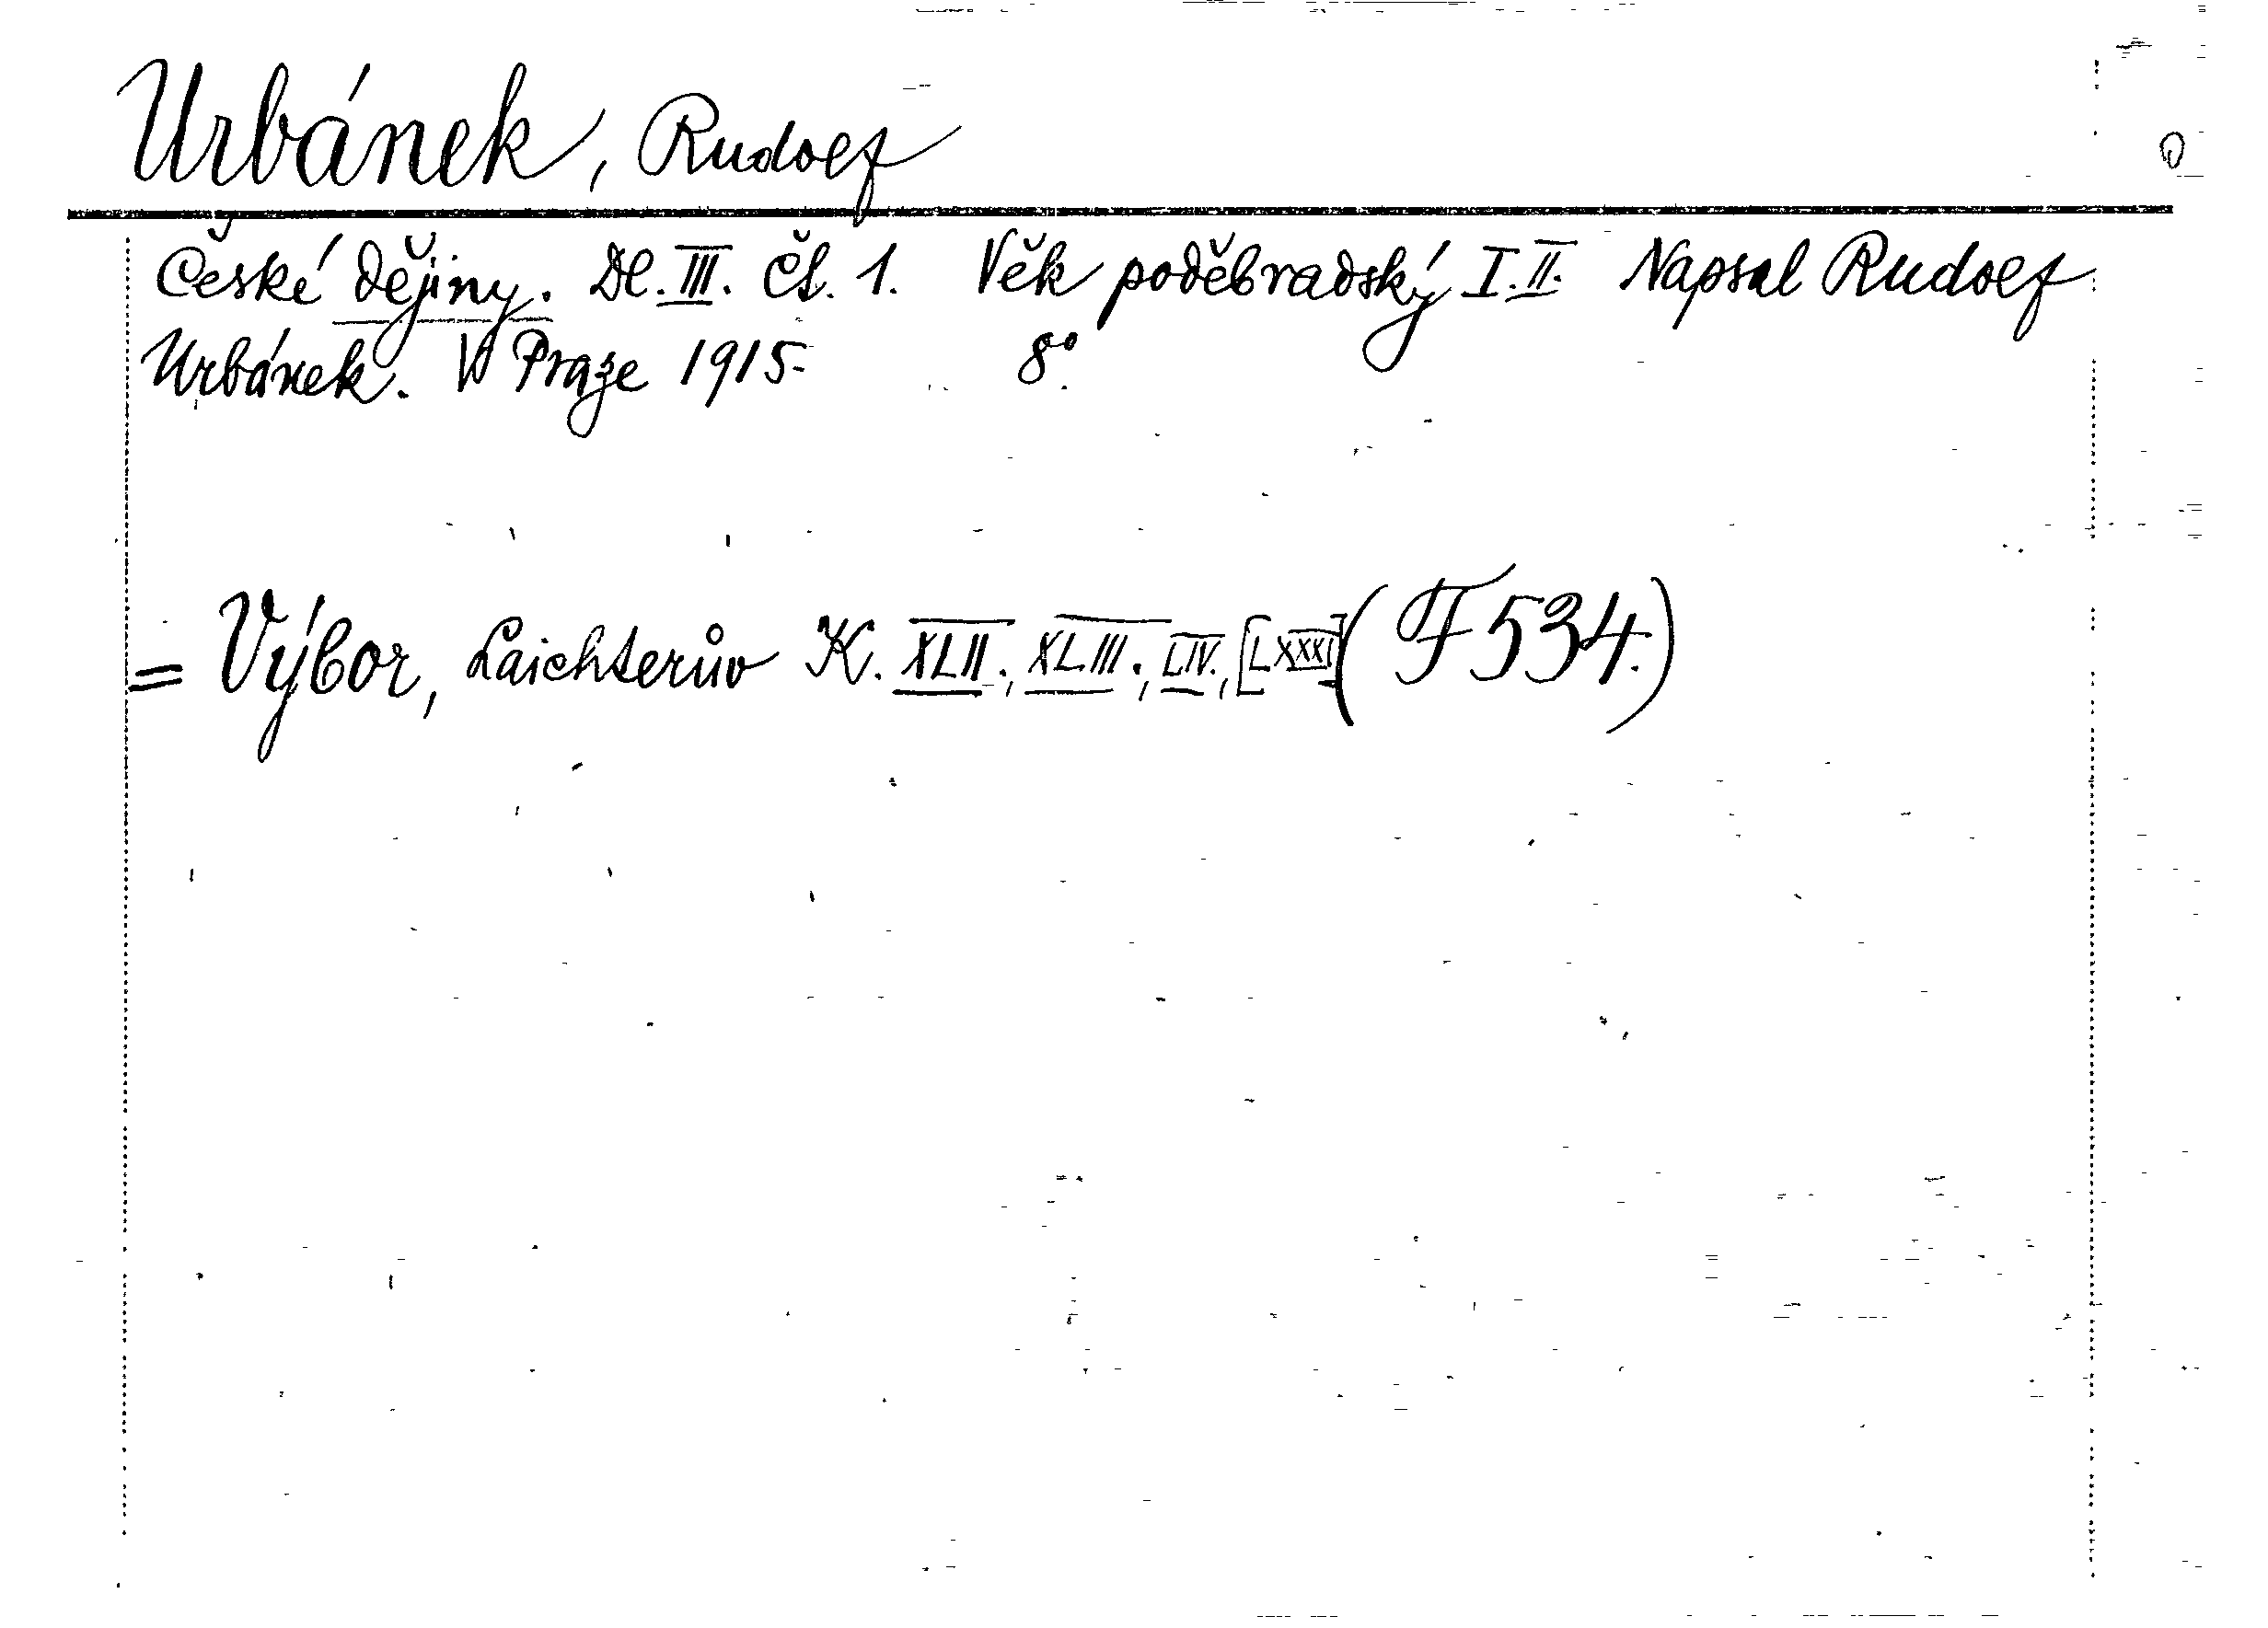 Urbánek, Rudolf
České dějiny. Dl. III. Čt. 1. Věk poděbradský I. II. Napsal Rudolf
Urbánek. V Praze 1915- 8°
= Výbor, Laichterův K. XLII., XLIII., LIV., [LXXXI] (F 534.)